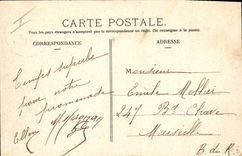 CARTE POSTALE
Tous les pays étrangers n'acceptent pas la correspondance au recto. (Se renseigner à la poste)
CORRESPONDANCE
ADRESSE
Temps superbe
pour notre
promenade
Monsieur
Emile
247 Bd Chave
Marseille
B du R